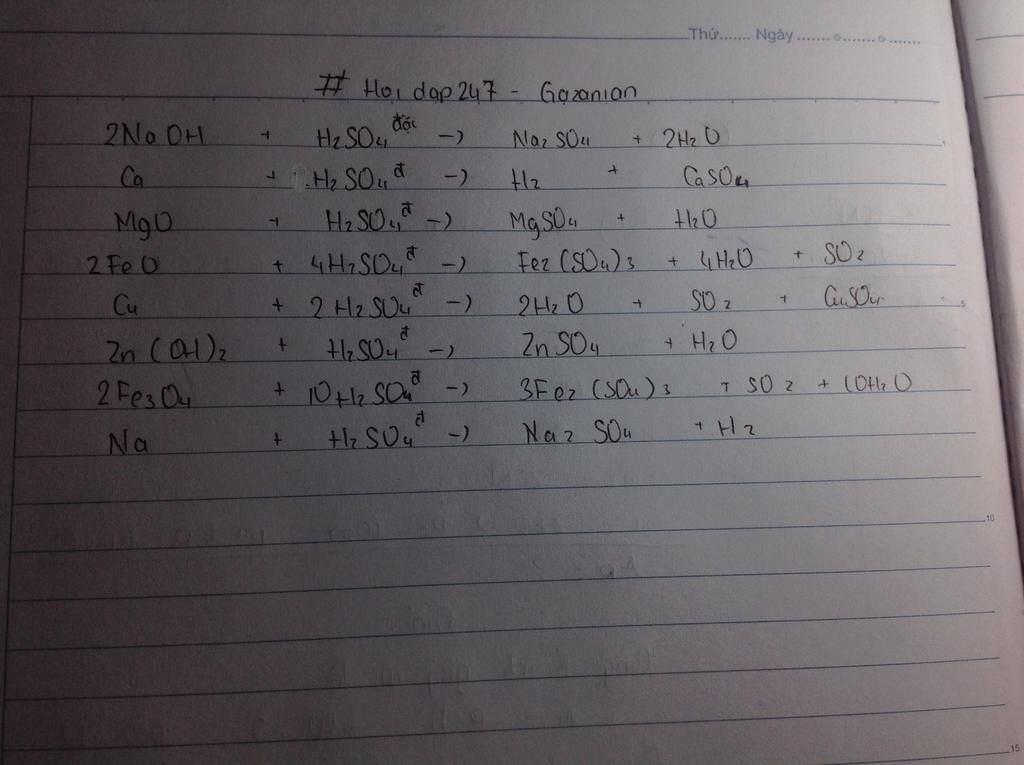 Thứ....... Ngày ....... o ....... o .......
# Hoi dap 247 - Gazanian
2NaOH + H2SO4 đặc -> Na2SO4 + 2H2O
Ca + H2SO4 đ -> H2 + CaSO4
MgO + H2SO4 đ -> MgSO4 + H2O
2FeO + 4H2SO4 đ -> Fe2(SO4)3 + 4H2O + SO2
Cu + 2H2SO4 đ -> 2H2O + SO2 + CuSO4
Zn(OH)2 + H2SO4 đ -> ZnSO4 + H2O
2Fe3O4 + 10H2SO4 đ -> 3Fe2(SO4)3 + SO2 + 10H2O
Na + H2SO4 đ -> Na2SO4 + H2
10
15